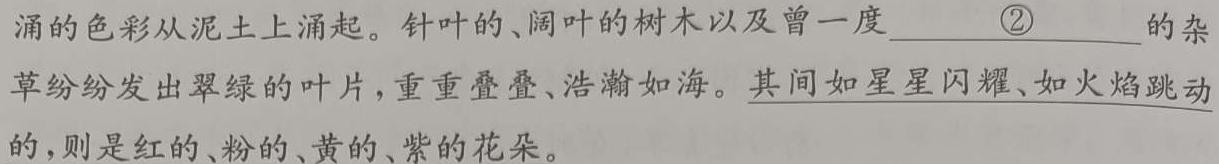 涌的色彩从泥土上涌起。针叶的、阔叶的树木以及曾一度____②____的杂
草纷纷发出翠绿的叶片，重重叠叠、浩瀚如海。其间如星星闪耀、如火焰跳动
的，则是红的、粉的、黄的、紫的花朵。